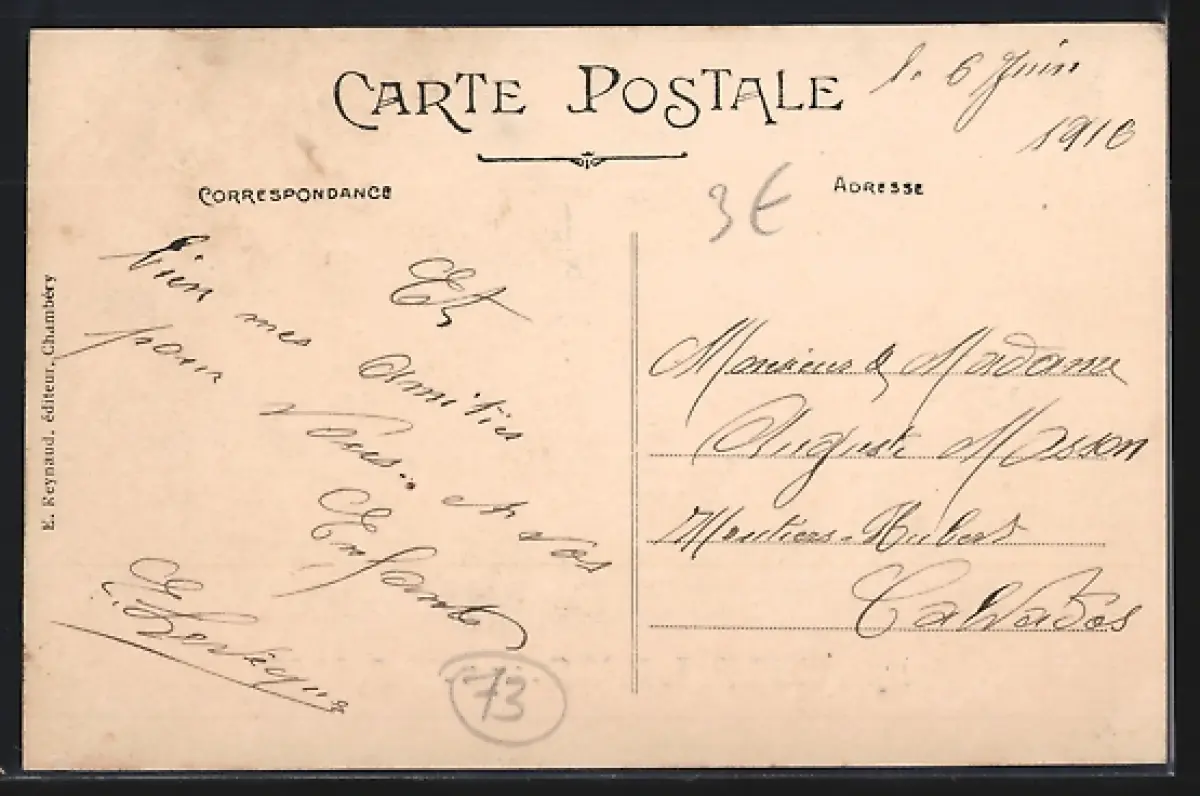 CARTE POSTALE
l. 6 Juin
1916
CORRESPONDANCE
ADRESSE
3€
Et
bien mes amitiés
pour Vous.. et vos
Enfants
E. Levêque
Monsieur & Madame
Auguste Masson
Moutiers-Hubert
Calvados
73
E. Reynaud, éditeur, Chambéry